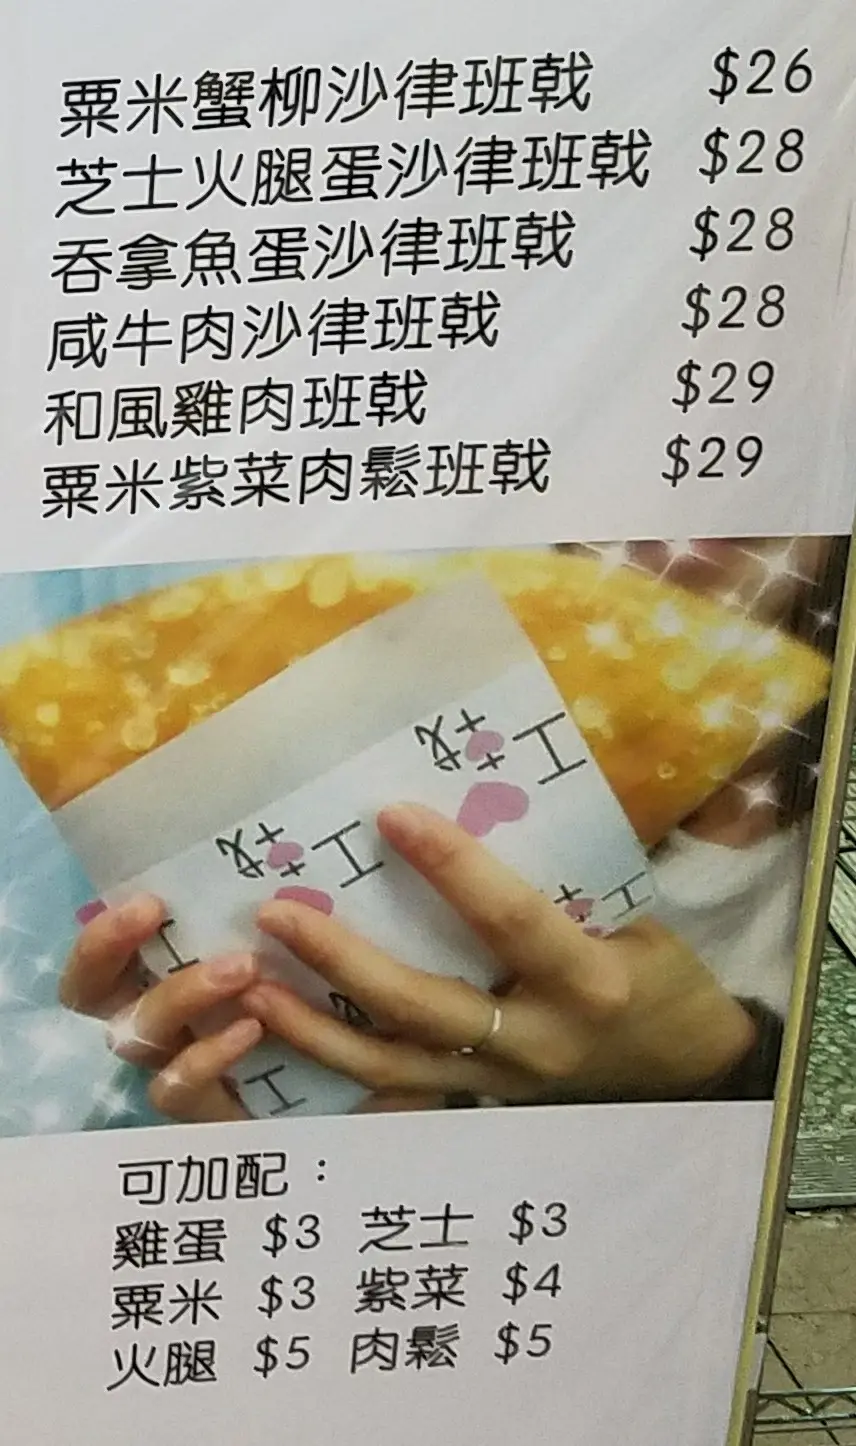 粟米蟹柳沙律班戟 $26
芝士火腿蛋沙律班戟 $28
吞拿魚蛋沙律班戟 $28
咸牛肉沙律班戟 $28
和風雞肉班戟 $29
粟米紫菜肉鬆班戟 $29
可加配：
雞蛋 $3 芝士 $3
粟米 $3 紫菜 $4
火腿 $5 肉鬆 $5